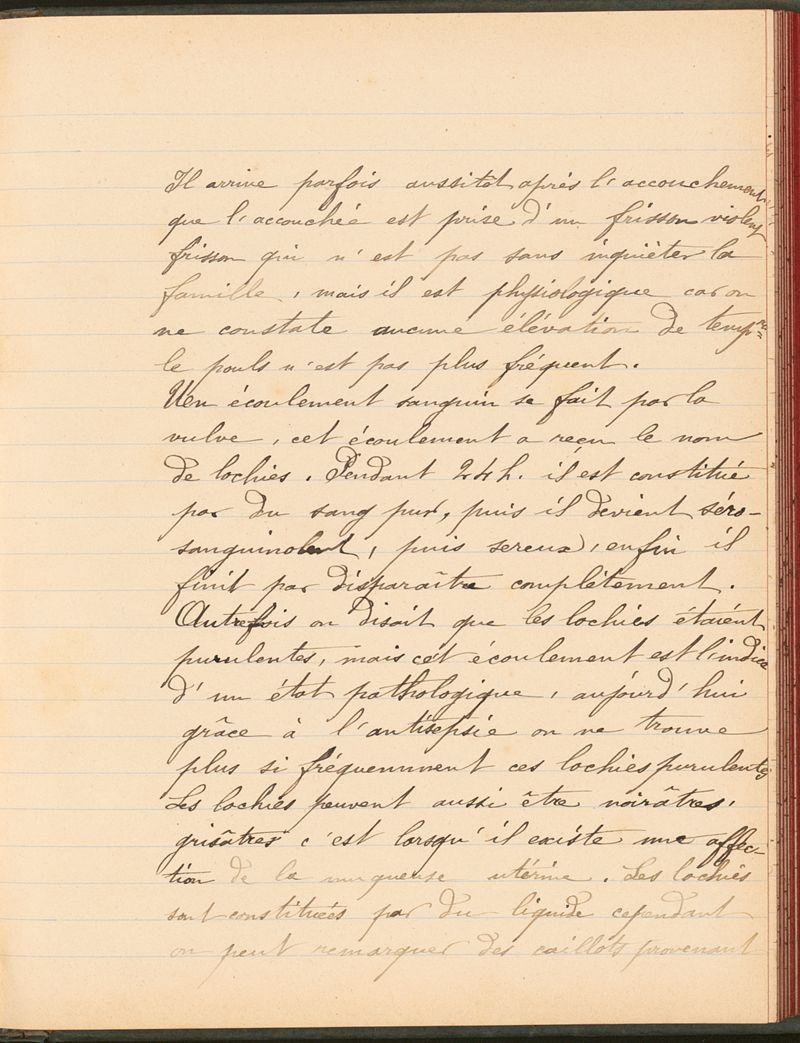 Il arrive parfois aussitôt après l'accouchement
que l'accouchée est prise d'un frisson violent
frisson qui n'est pas sans inquiéter la
famille, mais il est physiologique car on
ne constate aucune élévation de temp^re
le pouls n'est pas plus fréquent.
Uen écoulement sanguin se fait par la
vulve, cet écoulement a reçu le nom
de lochies. Pendant 24 h. il est constitué
par du sang pur, puis il devient séro-
sanguinolent, puis sereux, enfin il
finit par disparaître complètement.
Autrefois on disait que les lochies étaient
purulentes, mais cet écoulement est l'indice
d'un état pathologique, aujourd'hui
grâce à l'antisepsie on ne trouve
plus si fréquemment ces lochies purulentes
Les lochies peuvent aussi être noirâtres,
grisâtres c'est lorsqu'il existe une affec-
tion de la muqueuse utérine. Les lochies
sont constituées par du liquide cependant
on peut remarquer des caillots provenant